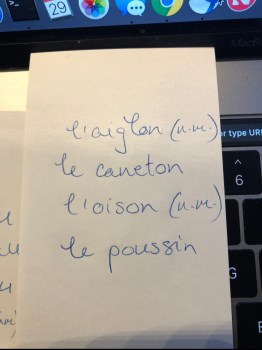 29
l'aiglon (n.m.)
le caneton
l'oison (n.m.)
le poussin
or type URL
^
6
G